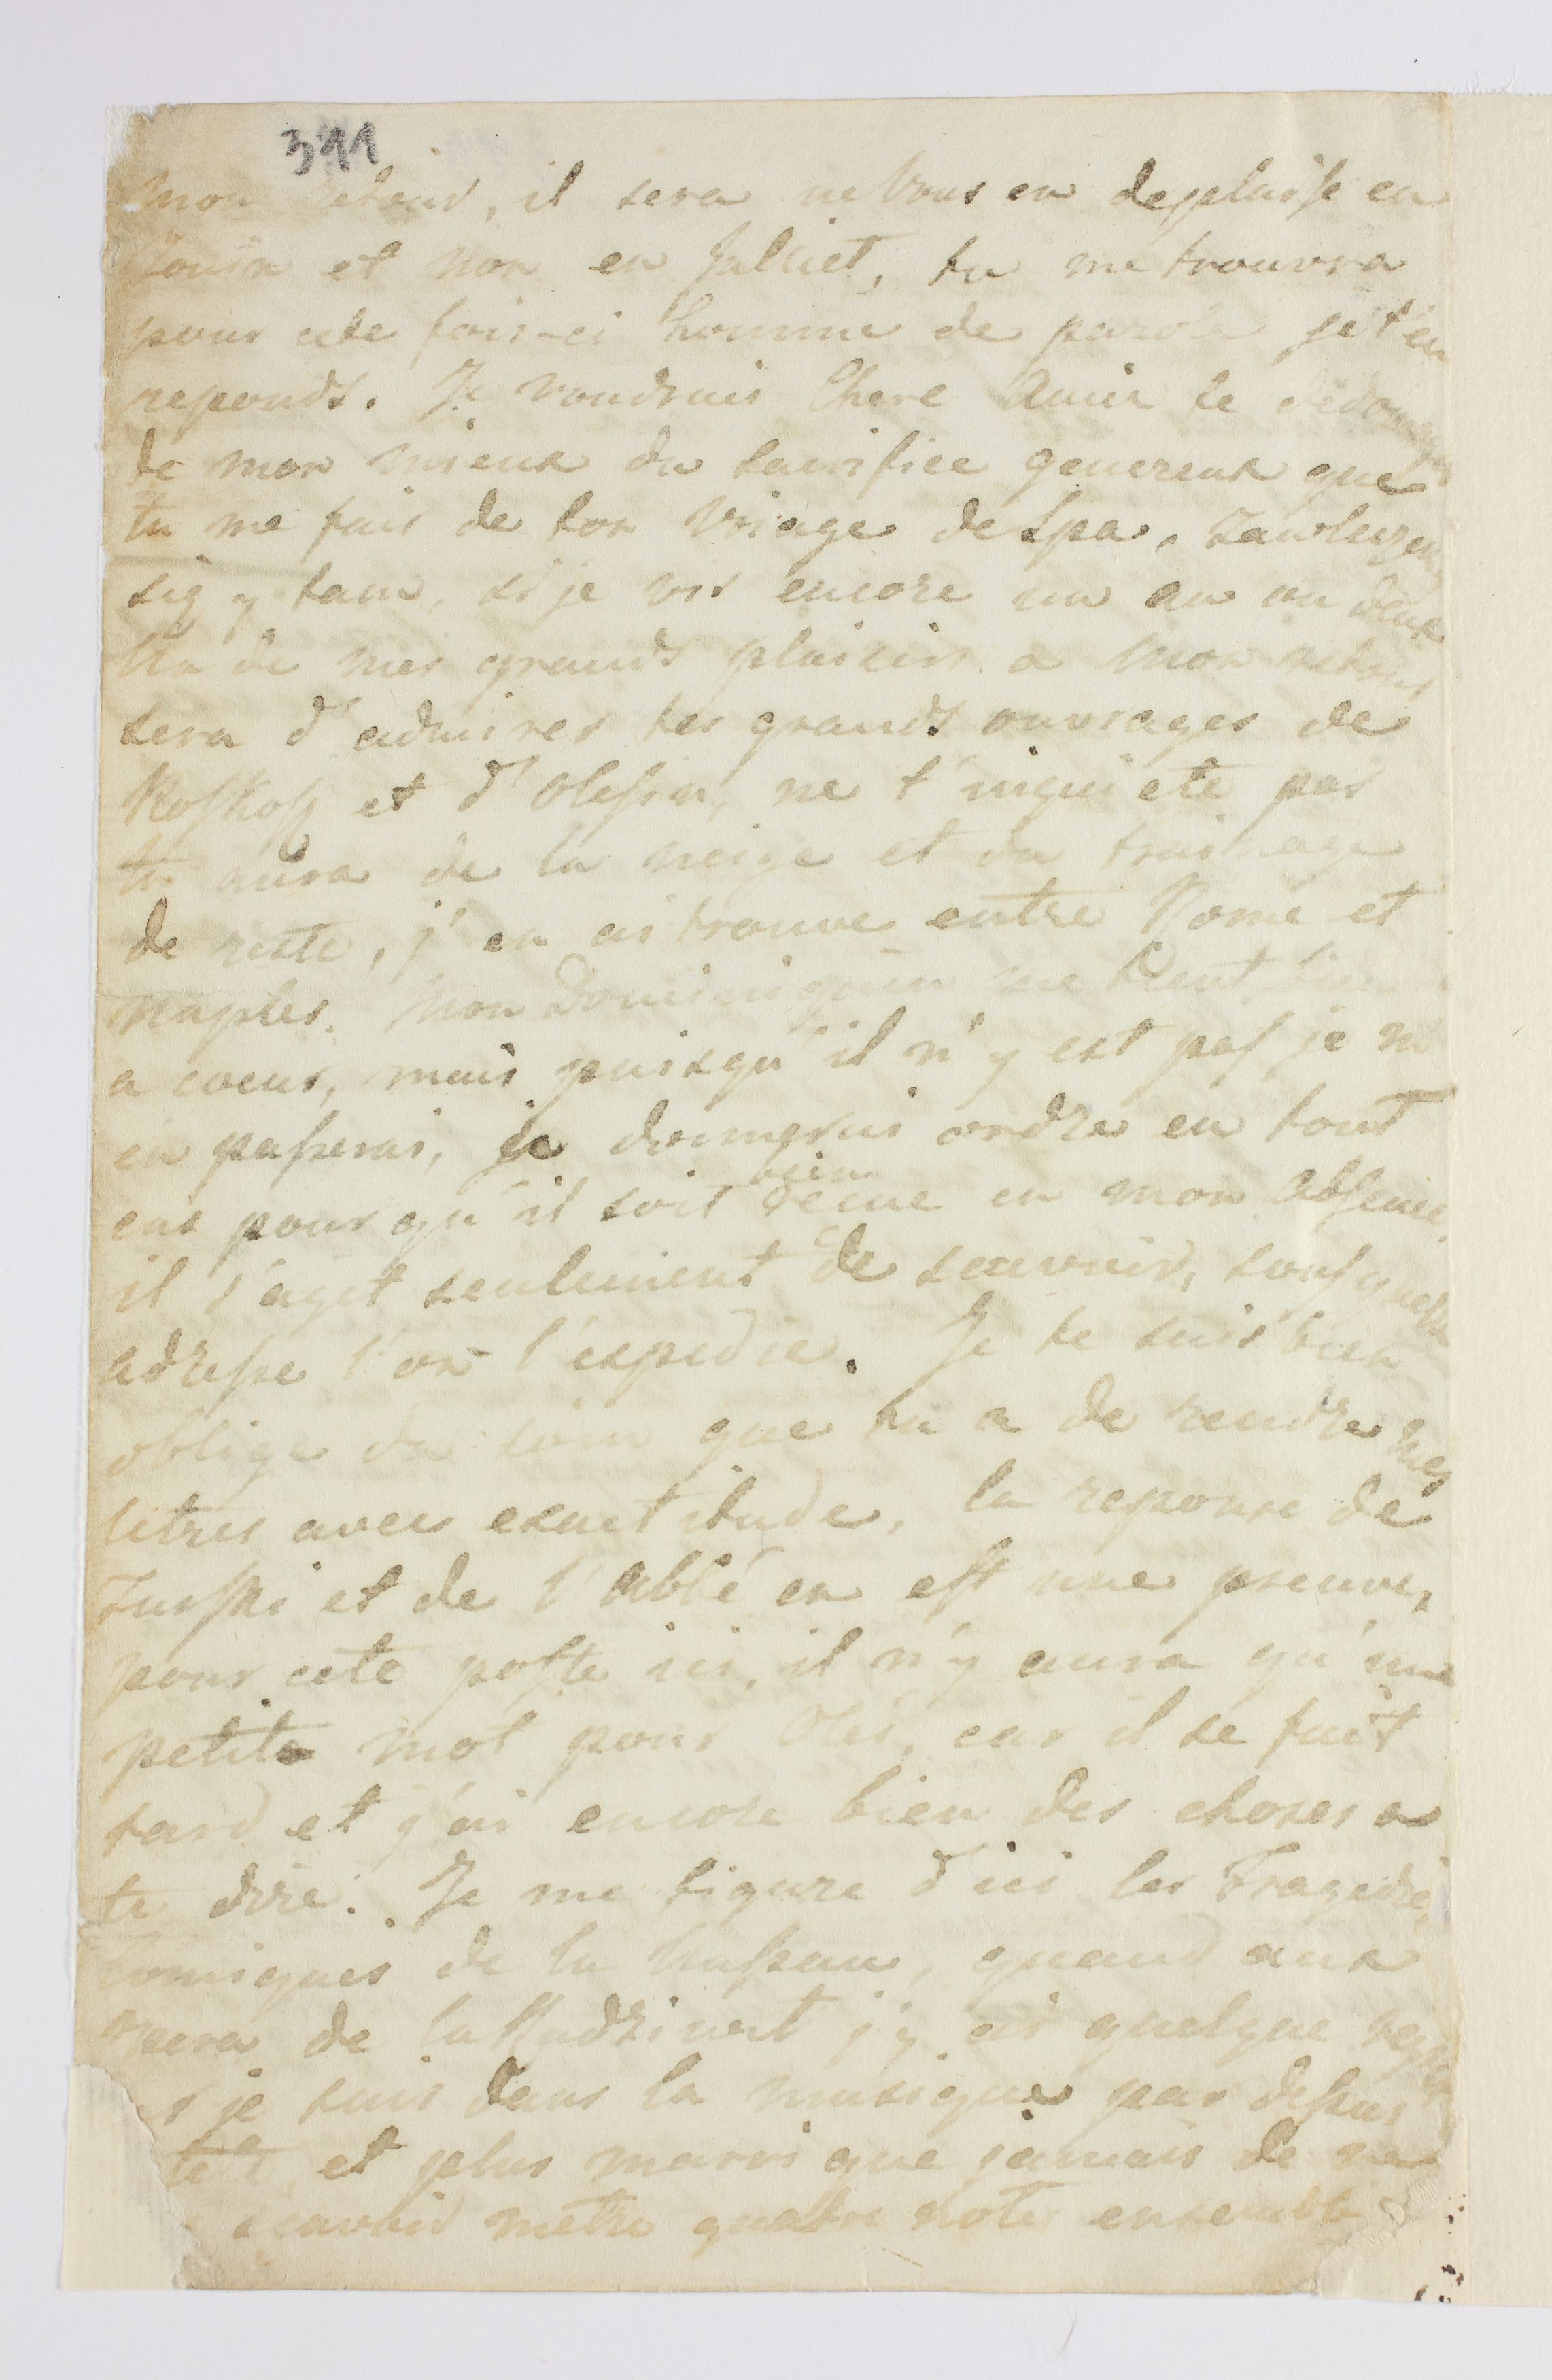 311
mon retour, il sera ne Vous en deplaisse en
Jouin et non en Julliet, tu me trouvera
pour cete fois-ci homme de parole je t'en
reponds. Je voudrais Chere Amie te dédomager
de mon mieux du sacrifice genereux que
tu me fais de ton Voiage de Spa, zawleczem
się y tam, si je vis encore un an ou deux
Un de mes grands plaisirs a mon retour
sera d'admirer tes grands ouvrages de
Roskosz et d'Olesin, ne t'inquiete pas
tu aura de la neige et du trainage
de reste, j'en ai trouve entre Rome et
Naples. Mon Dominiquin me tient bien
a coeur, mais puisqu'il n'y est pas je m'
en passerai, je donnerai ordre en tout
cas pour qu'il soit bien recue en mon Absence
il s'agit seulement de scavoir, sous quelle
adresse l'on l'expedie. Je te suis bien
oblige du soin que tu a de rendre mes
letres avec exactitude, la reponse de
Turski et de l'Abbé en est une preuve,
pour cete poste ici, il n'y aura qu'un
petit mot pour Oleś, car il se fait
tard et j'ai encore bien des choses a
te dire. Je me figure d'ici les Tragedie
comiques de la , quand aux
opera de la j'y ai quelque regret
je suis dans la musique par dessus
tete, et plus marri que jamais de ne
scavoir metre quatre note ensemble